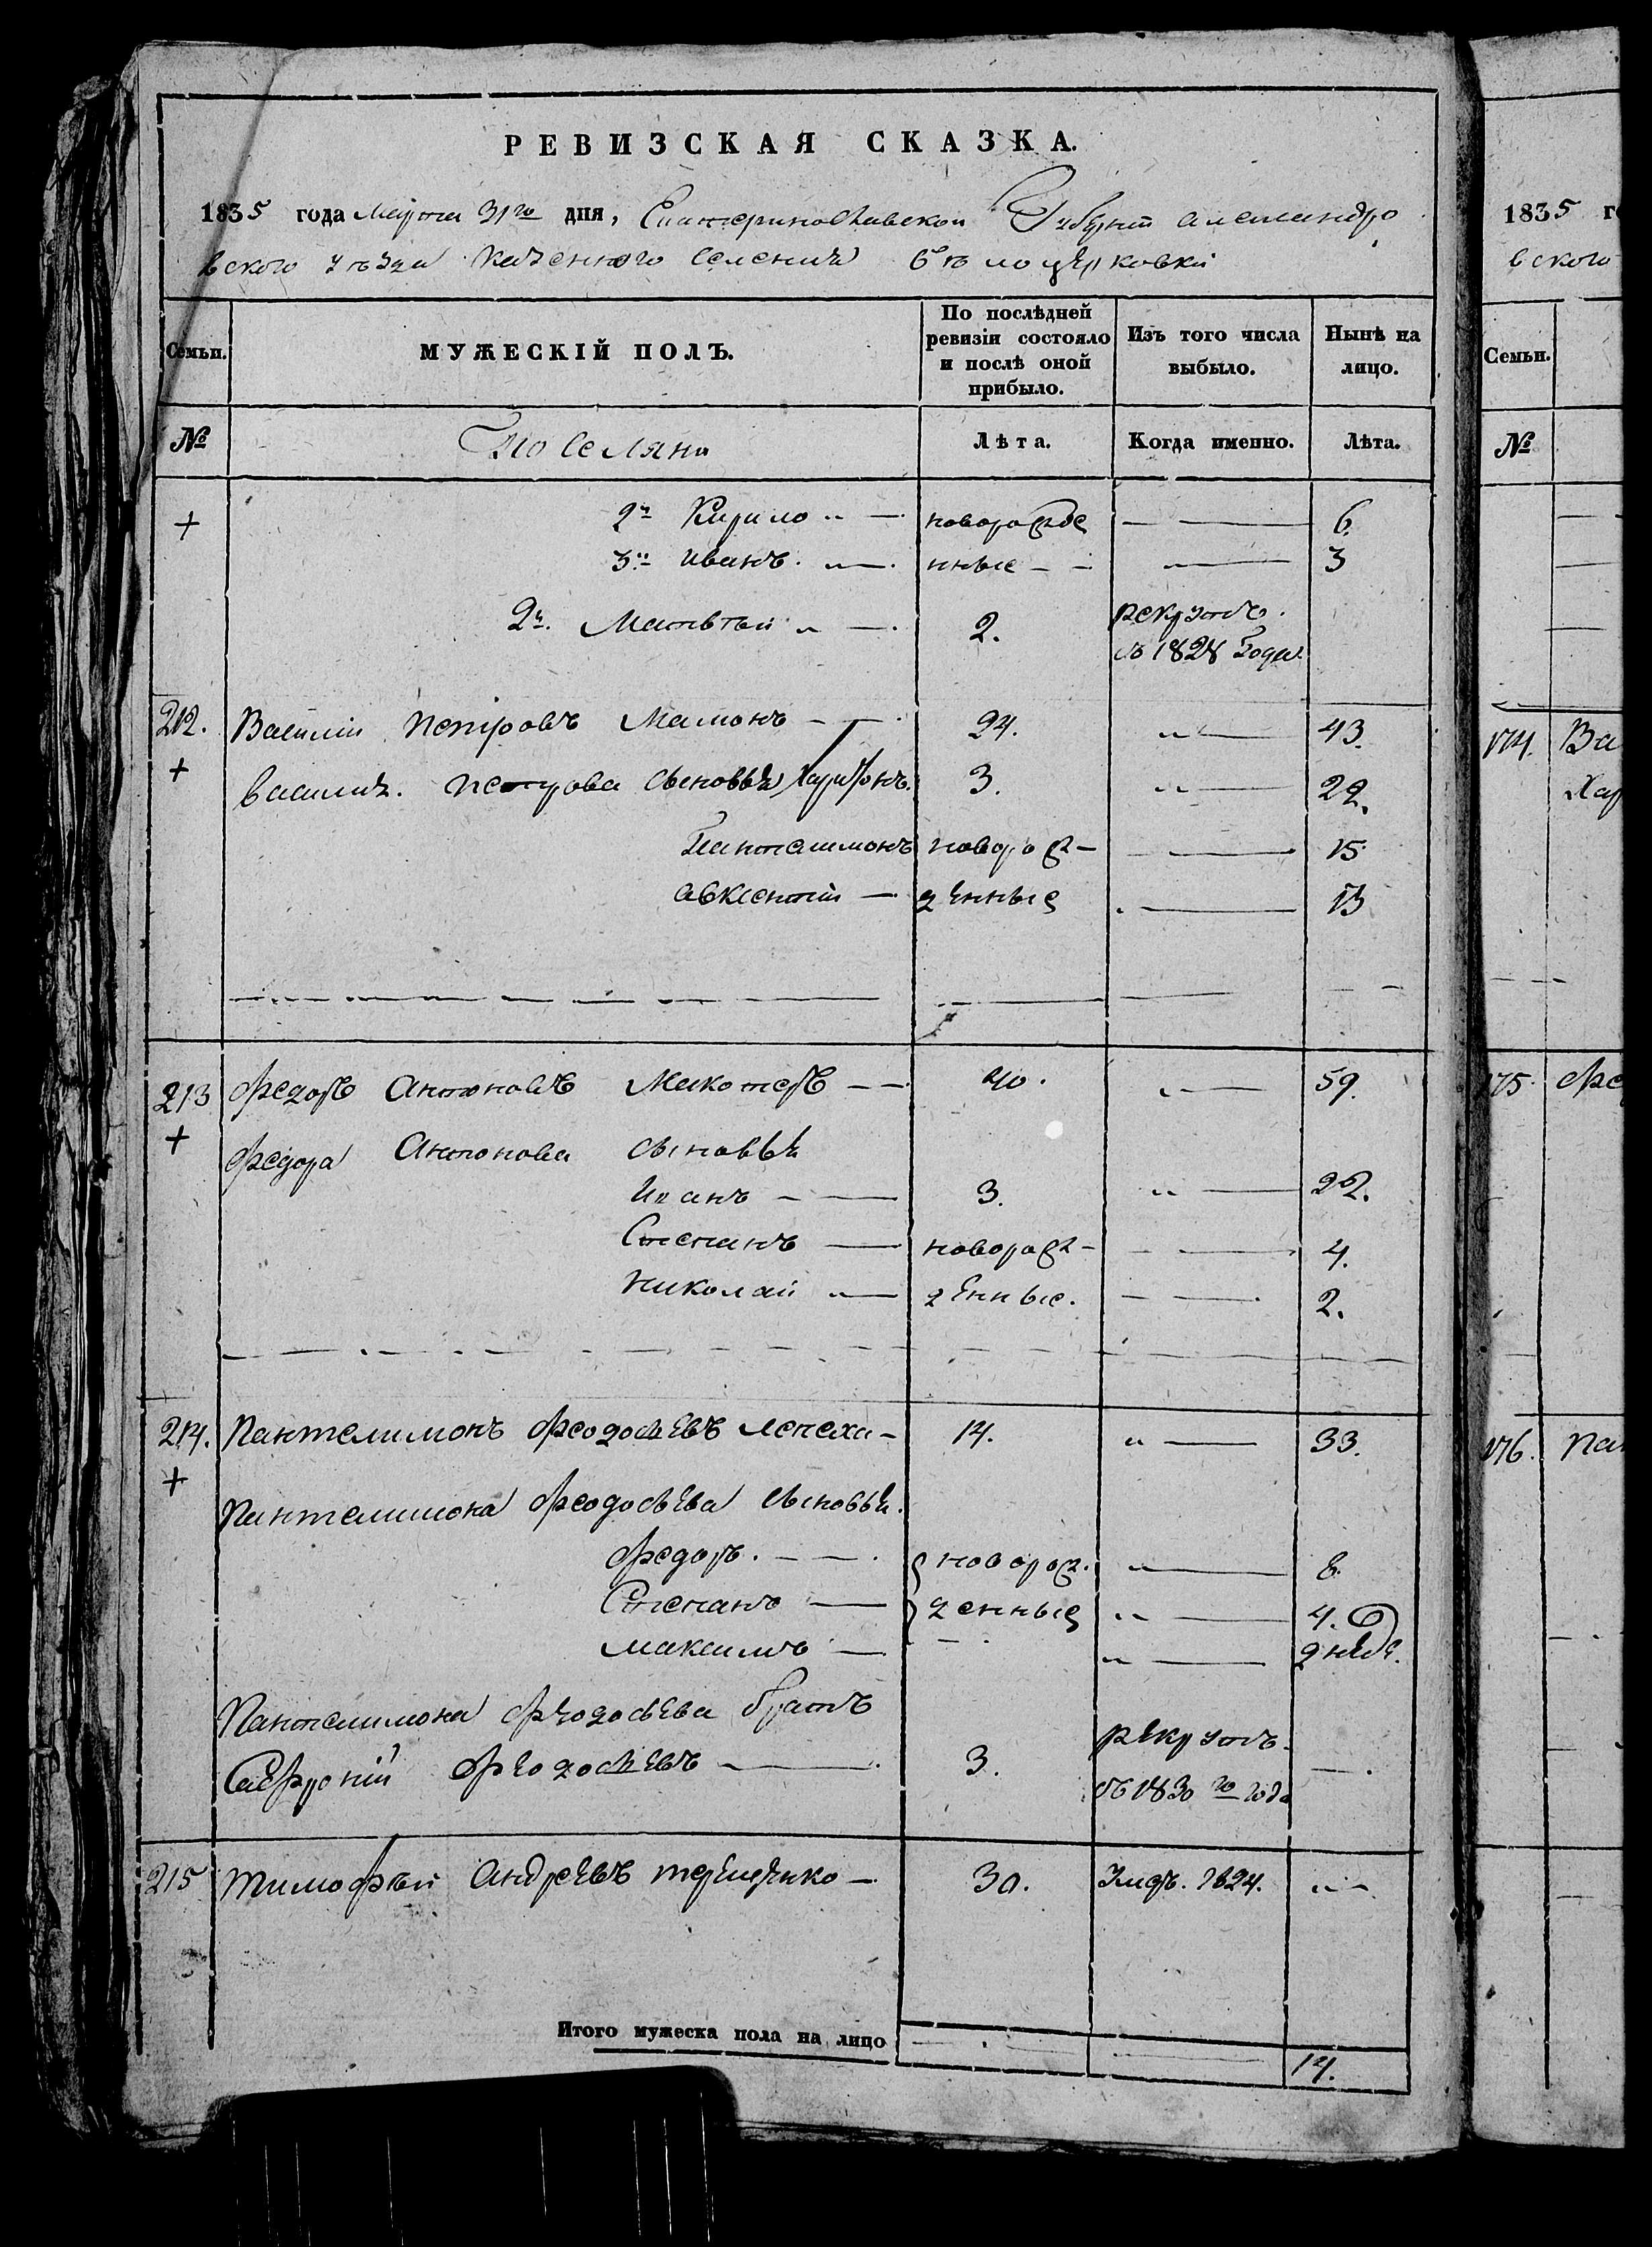 РЕВИЗСКАЯ СКАЗКА.
1835 года Марта 31го дня, Екатеринославской Губерніи Александро
вского уѣзда Казенного Селения Бѣлоцерковки
Семьи. МУЖЕСКІЙ ПОЛЪ. По послѣдней ревизіи состояло и послѣ оной прибыло. Изъ того числа выбыло. Нынѣ на лицо.
№ Поселяни Лѣта. Когда именно. Лѣта.
+ 2й Кирило новорожде 6.
3й Иванъ нные 3
2й Матвѣй 2. рекрутъ
съ 1828 года
212. Василій Петровъ Мамонъ 24. 43.
+ Василия Петрова сыновья Харитонъ 3. 22.
Пантелимонъ новорож- 15
Авксентій денные 13
213 Федоръ Антоновъ 40. 59.
+ Федора Антонова сыновья
Иванъ 3. 22.
Степанъ новорож- 4.
Николай денные. 2.
214. Пантелимонъ Феодосѣевъ Лепеха 14. 33.
+ Пантелимона Феодосѣева сыновья
Федоръ новорож. 8.
Степанъ денные 4.
Максимъ 2 неде.
Пантелимона Феодосѣева братъ
Феодосѣевъ 3. рекрутъ
съ 1830го года
215 Тимофѣй Андреевъ Терещенко 30. 1824.
Итого мужеска пола на лицо 14.
1835 го
вского
Семьи.
№
174. Ва
Хар
175. Фе
176. Па